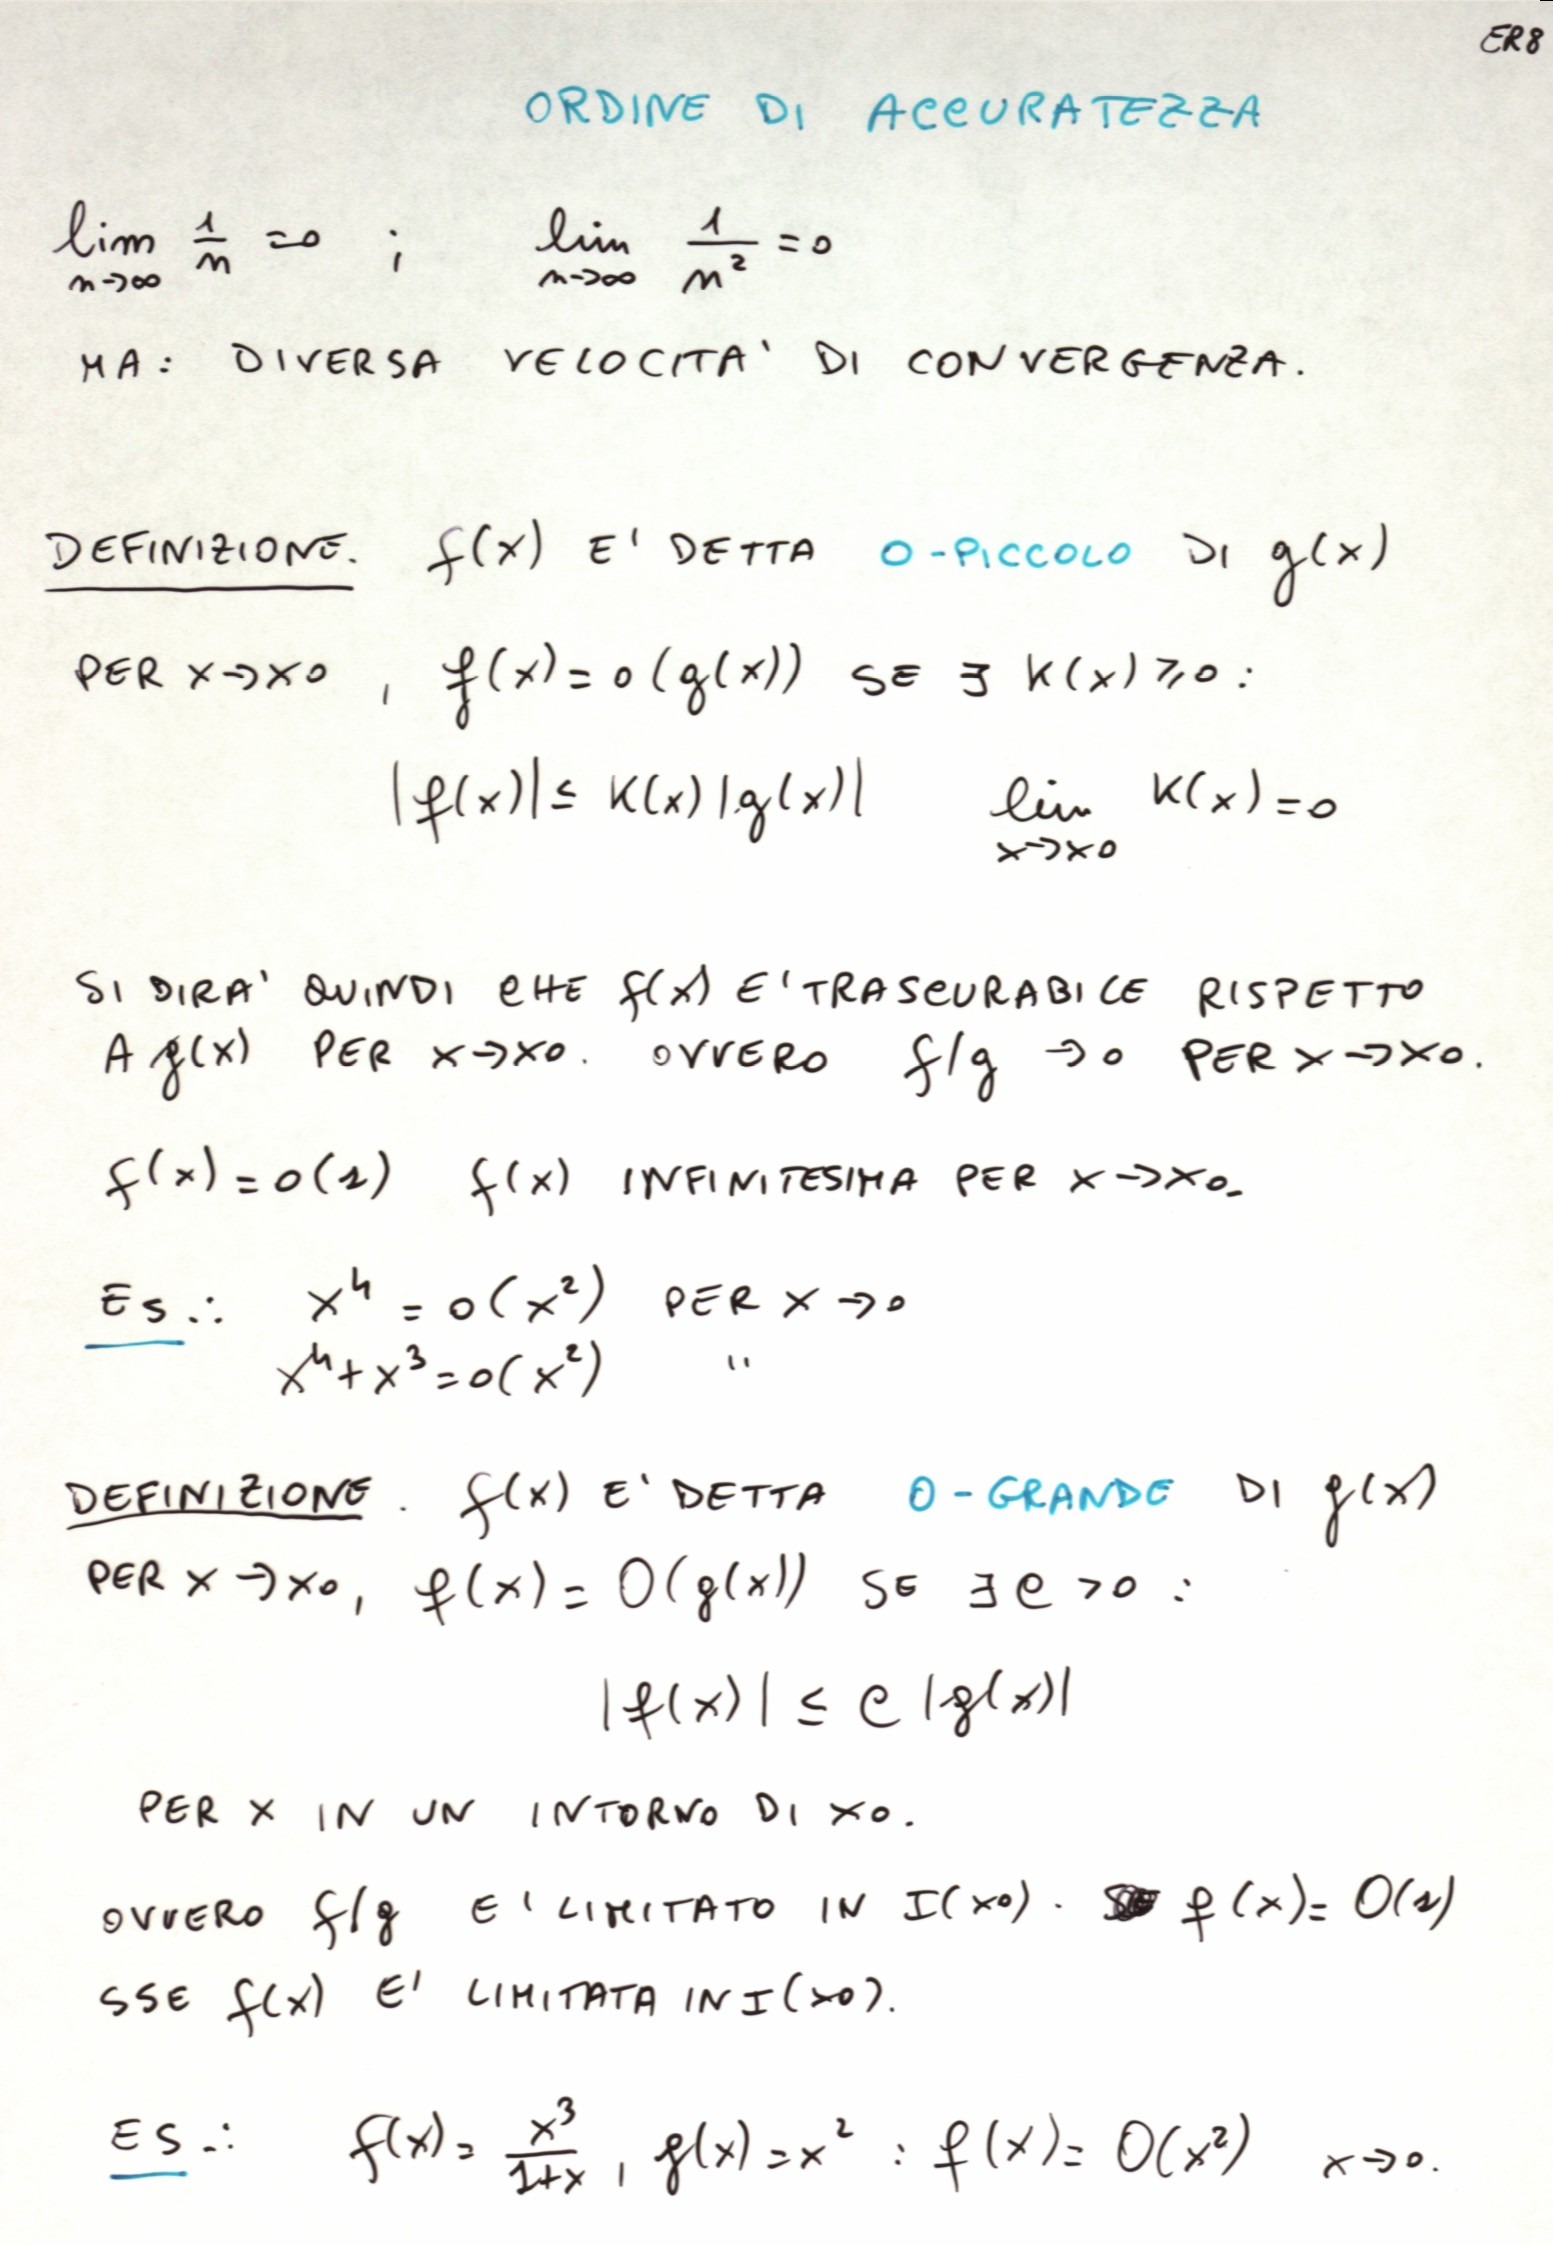 ER8
ORDINE DI ACCURATEZZA
lim n→∞ 1/n = 0 ; lim n→∞ 1/n² = 0
MA: DIVERSA VELOCITA' DI CONVERGENZA.
DEFINIZIONE. f(x) E' DETTA O-PICCOLO DI g(x)
PER x→x0, f(x) = o(g(x)) SE ∃ K(x) ≥ 0 :
|f(x)| ≤ K(x) |g(x)| lim x→x0 K(x) = 0
SI DIRA' QUINDI CHE f(x) E' TRASCURABILE RISPETTO
A g(x) PER x→x0. OVVERO f/g → 0 PER x→x0.
f(x) = o(1) f(x) INFINITESIMA PER x→x0.
ES.: x⁴ = o(x²) PER x→0
x⁴+x³ = o(x²) "
DEFINIZIONE. f(x) E' DETTA O-GRANDE DI g(x)
PER x→x0, f(x) = O(g(x)) SE ∃ C > 0 :
|f(x)| ≤ C |g(x)|
PER x IN UN INTORNO DI x0.
OVVERO f/g E' LIMITATO IN I(x0). f(x) = O(1)
SSE f(x) E' LIMITATA IN I(x0).
ES.: f(x) = x³/(1+x), g(x) = x² : f(x) = O(x²) x→0.